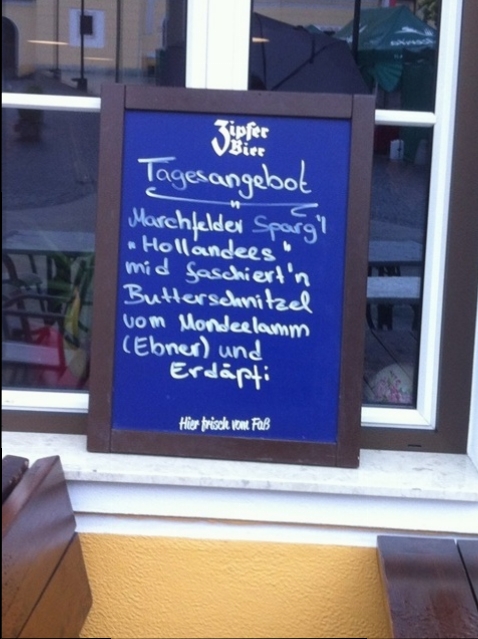 Zipfer
Bier
Tagesangebot
Marchfelder Sparg'l
"Hollandees"
mid faschiert'n
Butterschnitzel
vom Mondseelamm
(Ebner) und
Erdäpfi
Hier frisch vom Faß